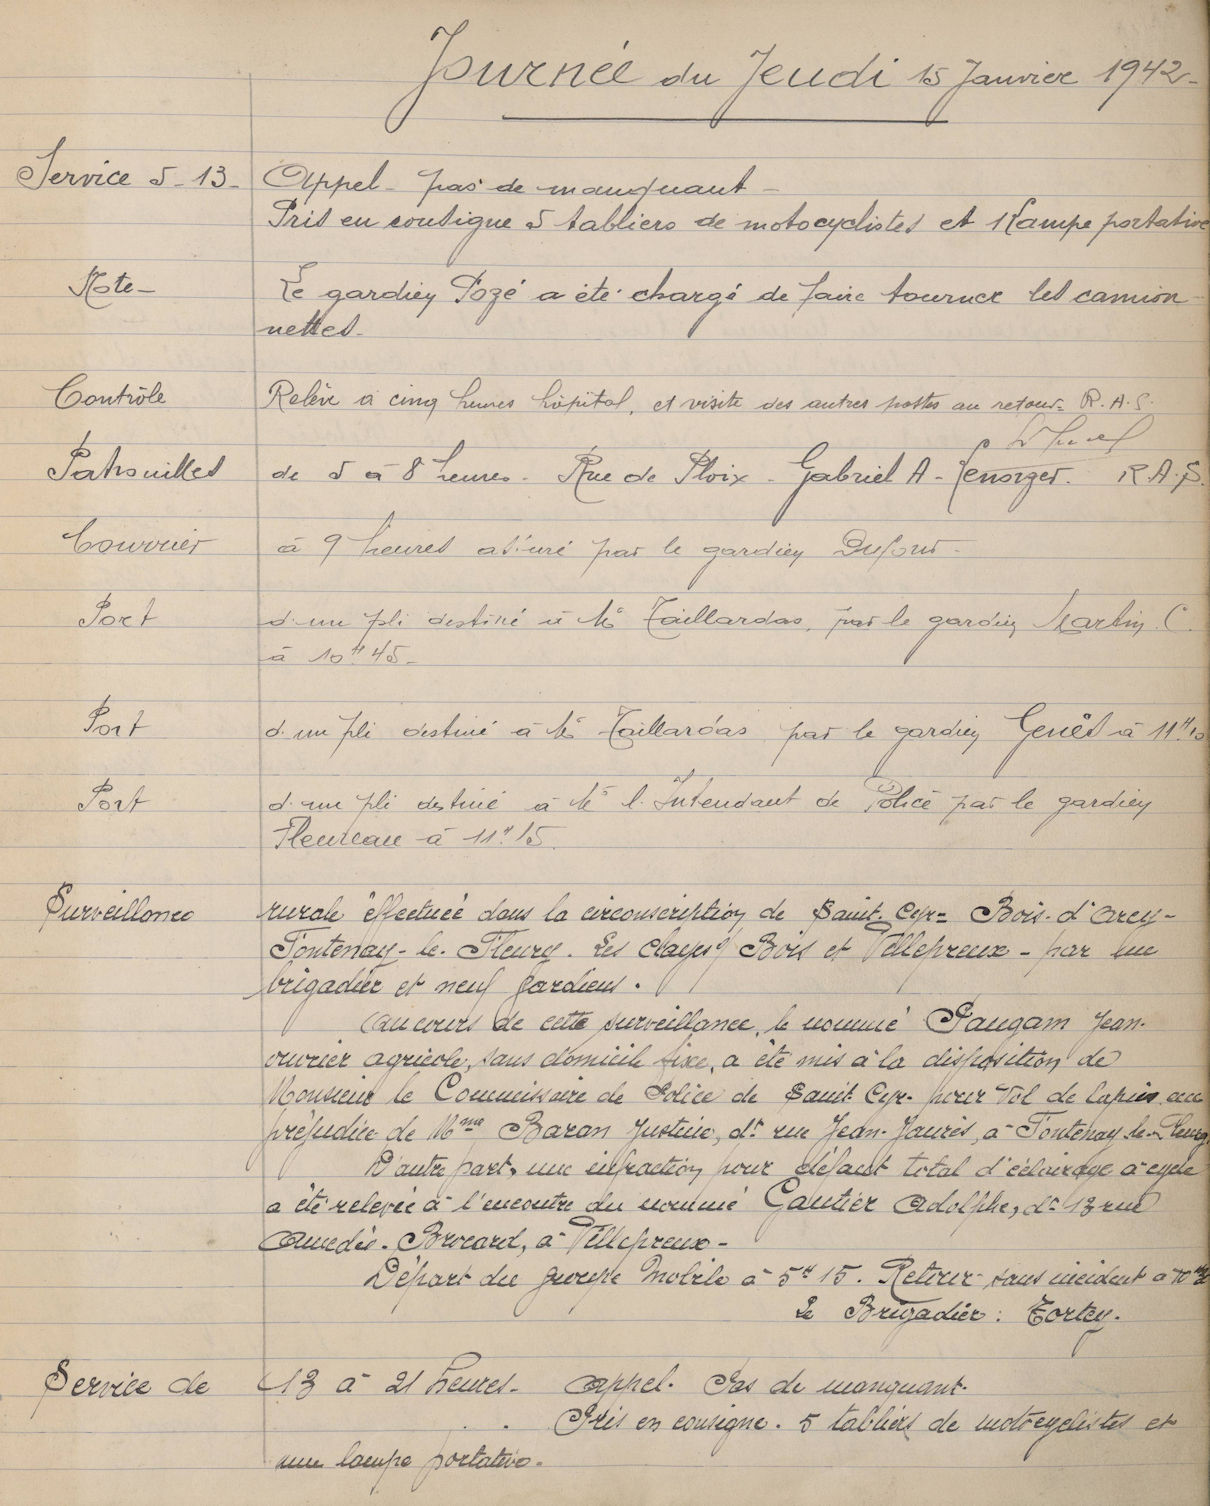 Journée du Jeudi 15 Janvier 1942-
Service 5-13- Appel- pas de manquant-
Pris en consigne 5 tabliers de motocyclistes et 1 Lampe portative
Note- Le gardien Pozé a été chargé de faire tourner les camion-
nettes-
Contrôle Relève à cinq heures hôpital, et visite des autres postes au retour- R.A.S.
Patrouilles de 5 à 8 heures- Rue de Ploix- Gabriel A- Lenorzer. R.A.S.
Courrier à 9 heures assuré par le gardien Dufour-
Port d'un pli destiné à Mr Taillardas, par le gardien Martin C.
à 10H45-
Port d'un pli destiné à Mr Taillardas par le gardien Genêt à 11H10
Port d'un pli destiné à Mr l'Intendant de Police par le gardien
Fleureau à 11H15.
Surveillance rurale éffectuée dans la circonscription de Saint-Cyr= Bois-d'Arcy-
Fontenay-le-Fleury. Les Clayes s/ Bois et Villepreux- par un
brigadier et neuf gardiens.
Au cours de cette surveillance, le nommé Paugam Jean-
ouvrier agricole, sans domicile fixe, a été mis à la disposition de
Monsieur le Commissaire de Police de Saint-Cyr- pour vol de lapins, au
préjudice de Mme Baran Justine, dt rue Jean-Jaurès, à Fontenay-le-Fleury.
D'autre part, une infraction pour défaut total d'éclairage à cycle
a été relevée à l'encontre du nommé Gautier Adolphe, dt 13 rue
Amedée-Brocard, à Villepreux-
Départ du groupe mobile à 5H15. Retour sans incident à
Le Brigadier: Tortey.
Service de 13 à 21 heures- Appel. Pas de manquant.
Pris en consigne. 5 tabliers de motocyclistes et
une lampe portative.